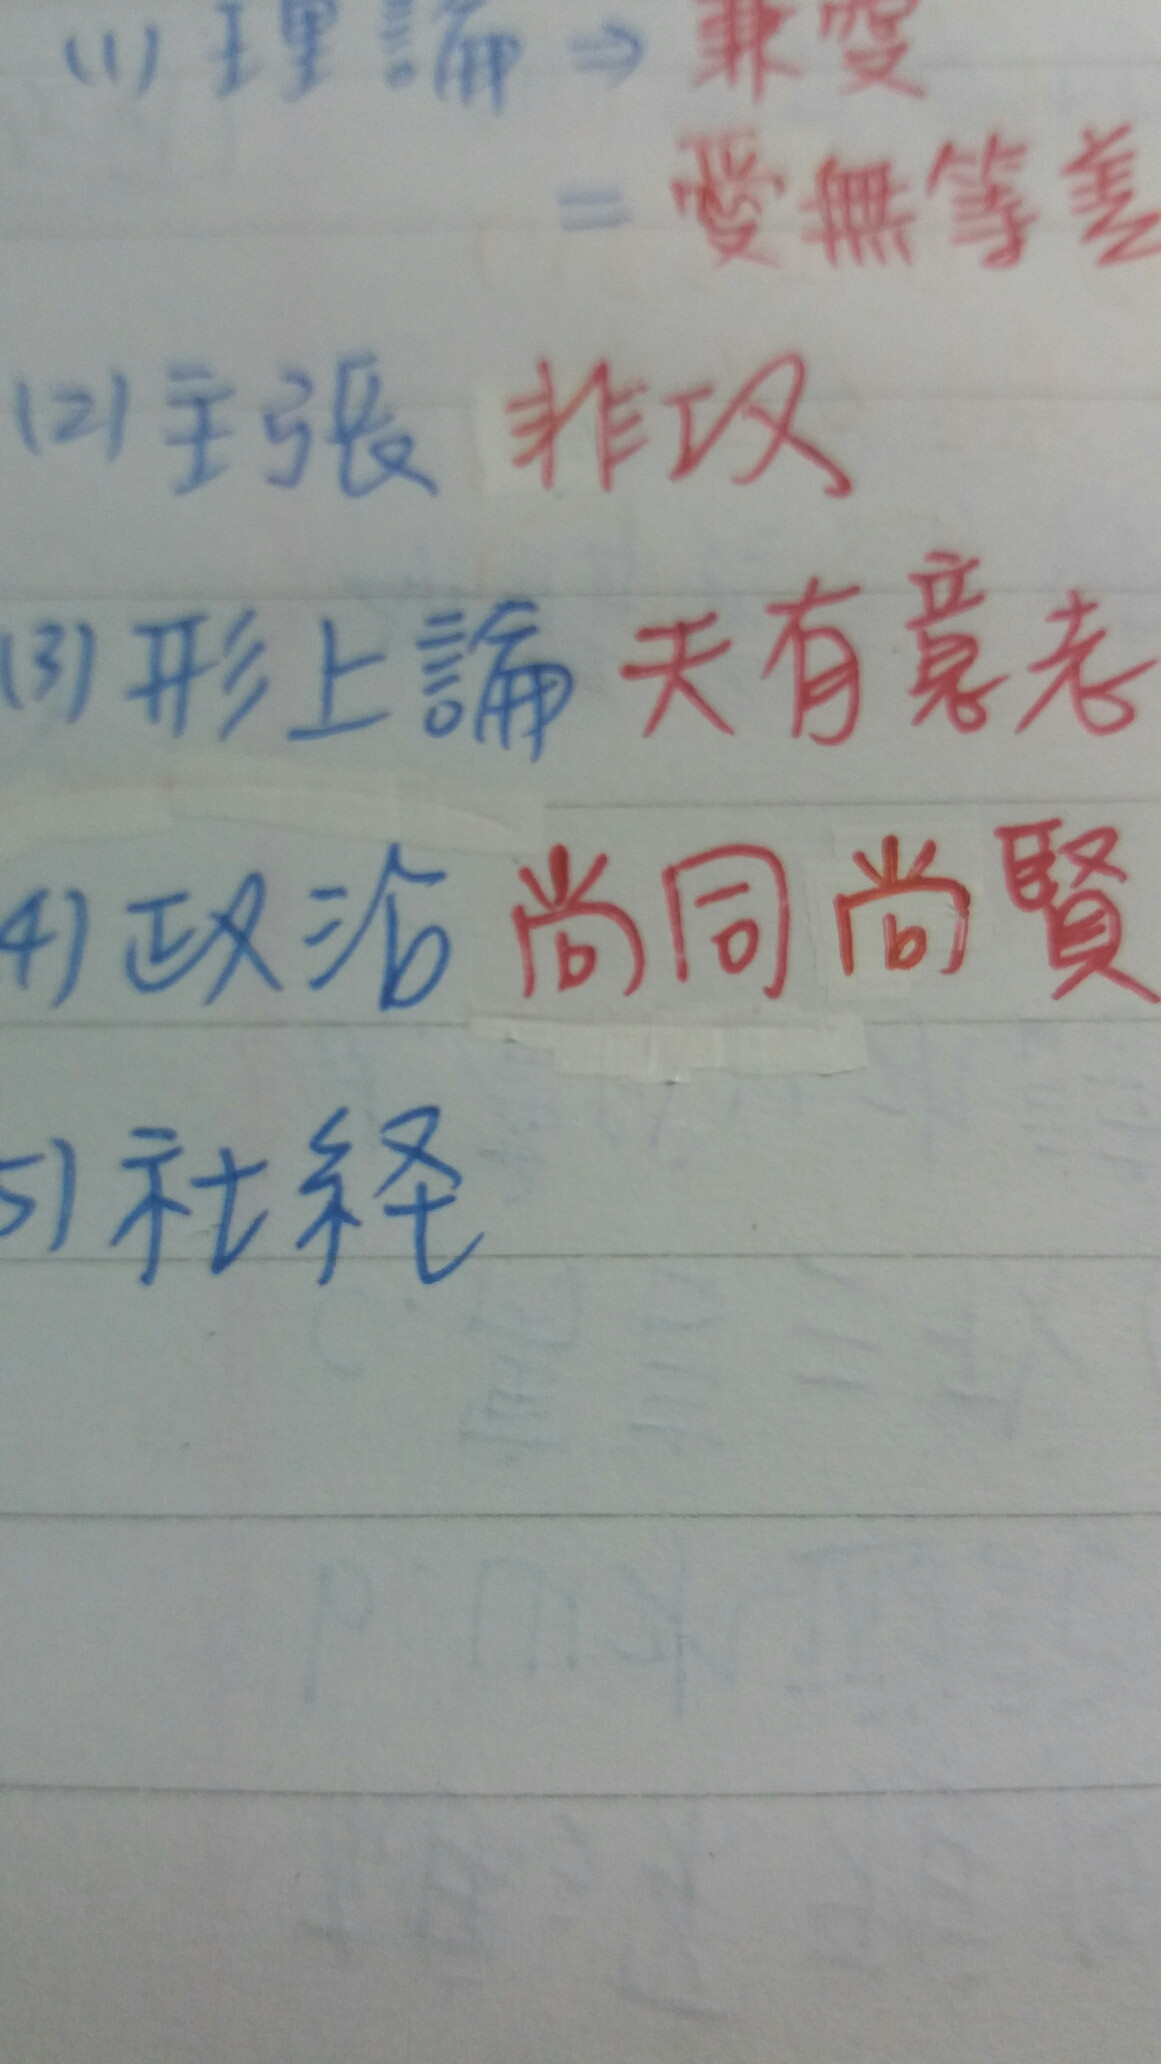 (1) 理論 ⇒ 兼愛
= 愛無等差
(2) 主張 非攻
(3) 形上論 天有意志
4) 政治 尚同 尚賢
5) 社経